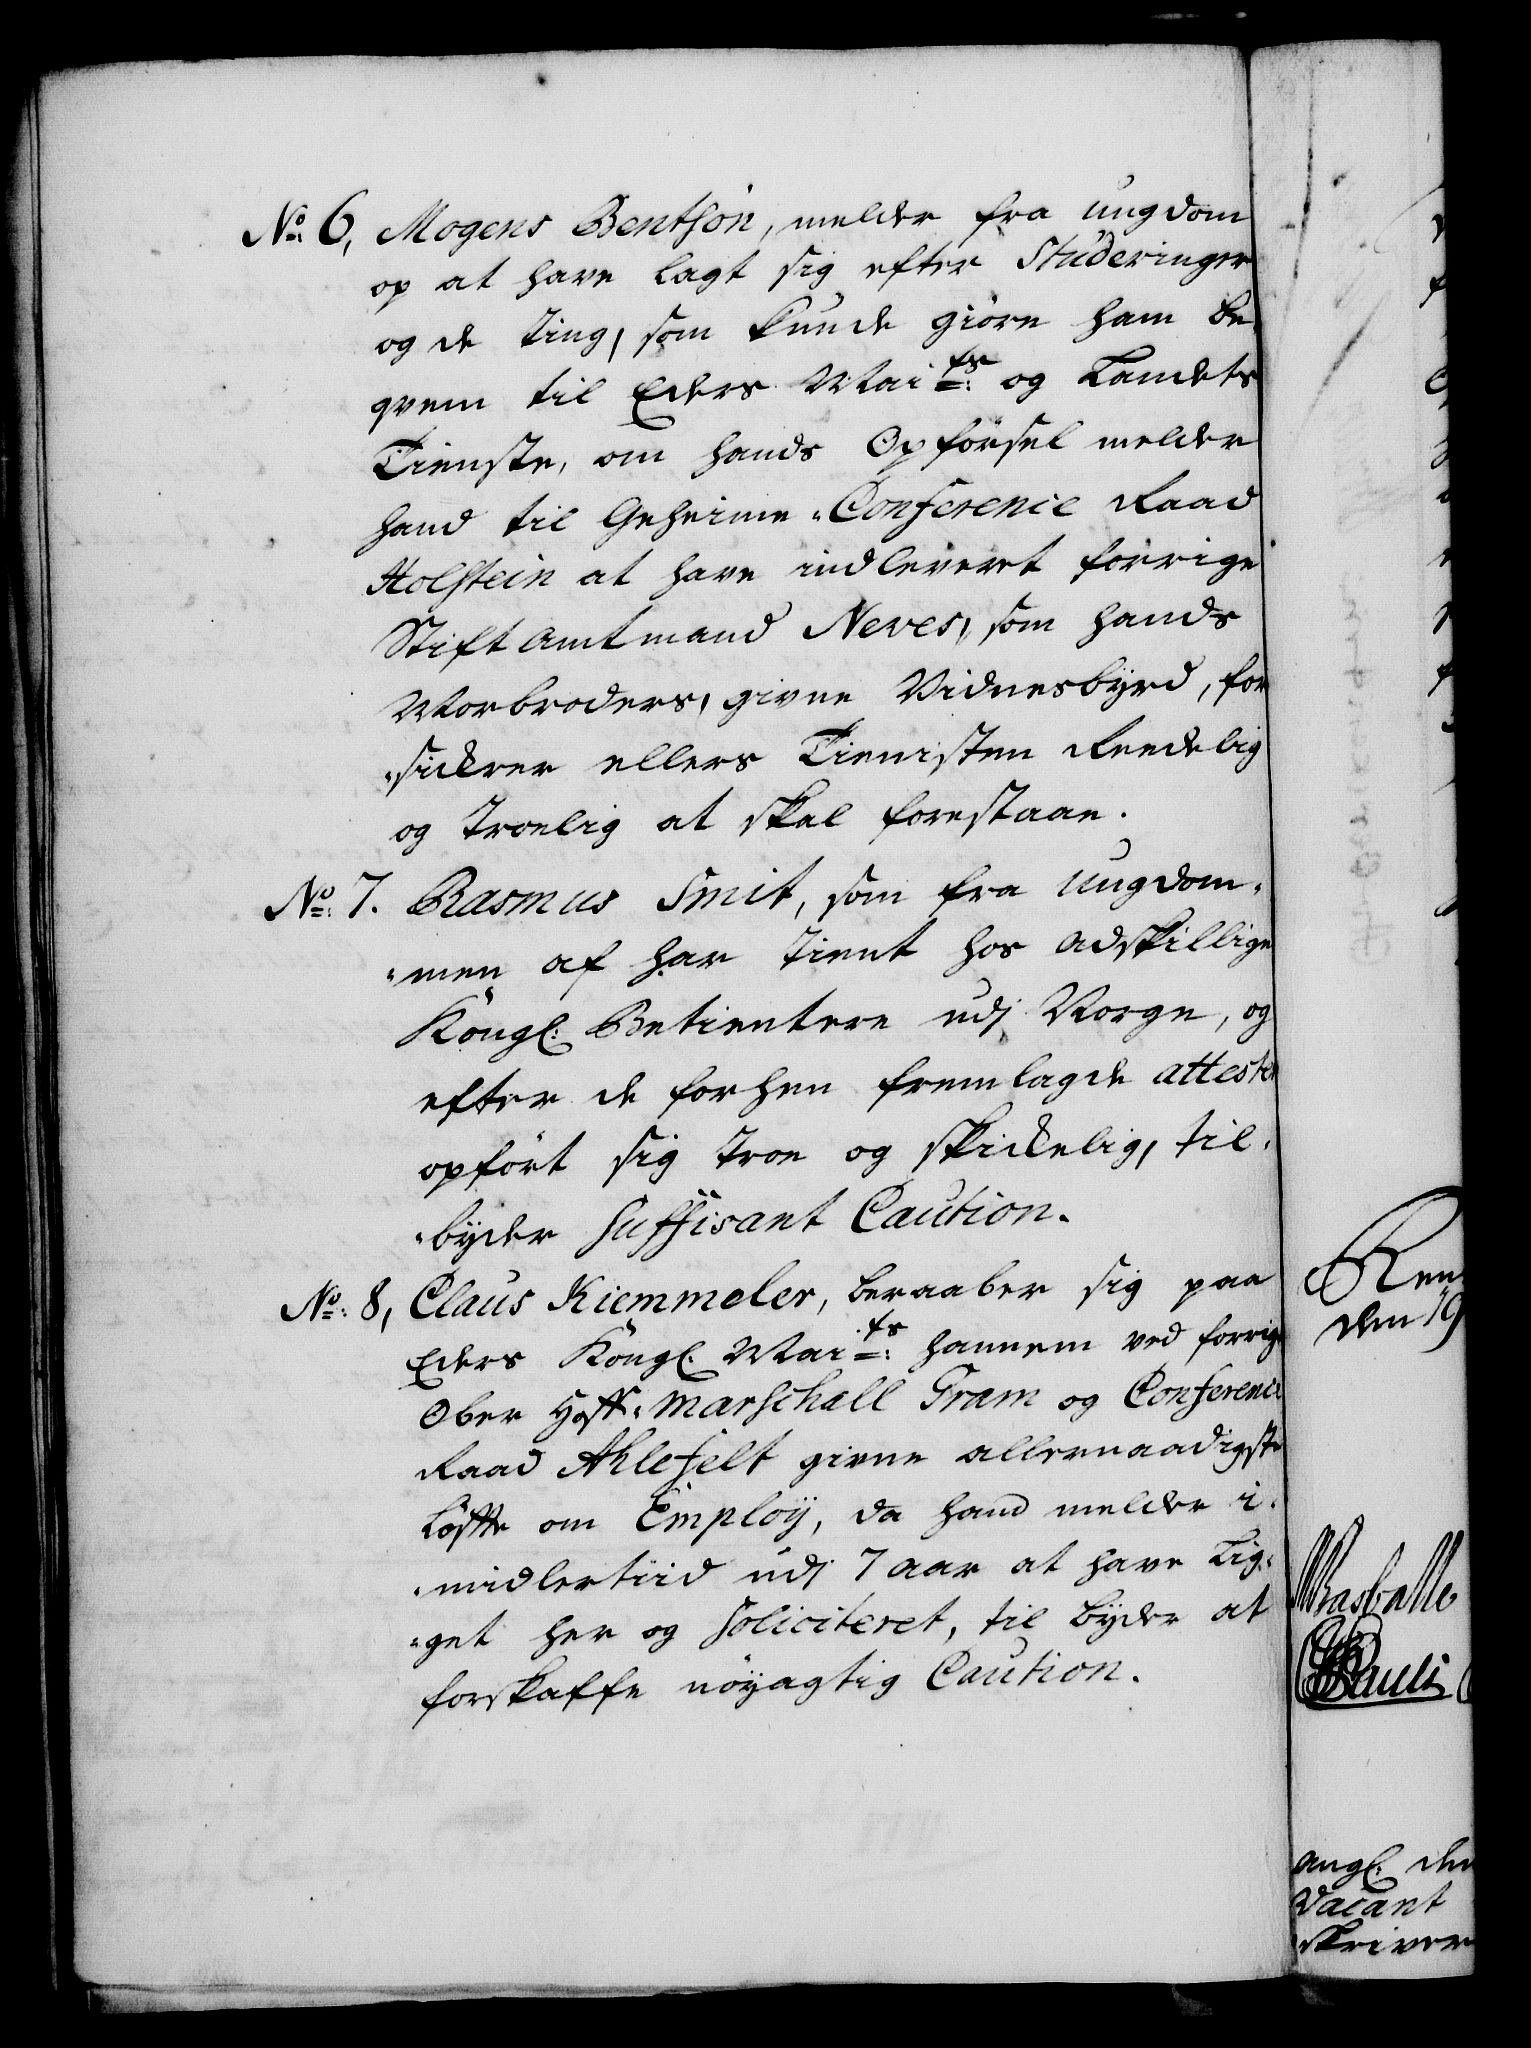 No: 6, Mogens Bentsön, melder fra ungdom
op at have lagt sig efter Studeringer
og de ting, som kunde giöre ham be-
qvem til Eders Maits: og Landets
Tieneste, om hands Opförsel melder
hand til Geheime-Conference Raad
Holstein at have indleveret forrige
Stift amtmand Neves, som hands
Morbroders, givne Vidnesbyrd, for
-sickrer ellers Tienisten Reedelig
og troelig at skal forestaae.
No: 7. Rasmus Smit, som fra ungdom-
-men af har tient hos adskillige
Köngl: Betientere udj Norge, og
efter de forhen fremlagde attester
opfört sig troe og skickelig, til-
-byder suffisant Caution.
No: 8, Claus Kiemmeler, beraaber sig paa
Eders Köngl. Maits: hannem ved forrige
Ober Hoff-Marschall Gram og Conference
Raad Ahlefelt givne allernaadigste
Löffte om Employ, da hand melder i-
-midlertiid udj 7 aar at have lig-
-get her og soliciteret, til byder at
forskaffe nöyagtig Caution.
Ren
den 19
Pauli
angl: den
Vacant
skriver